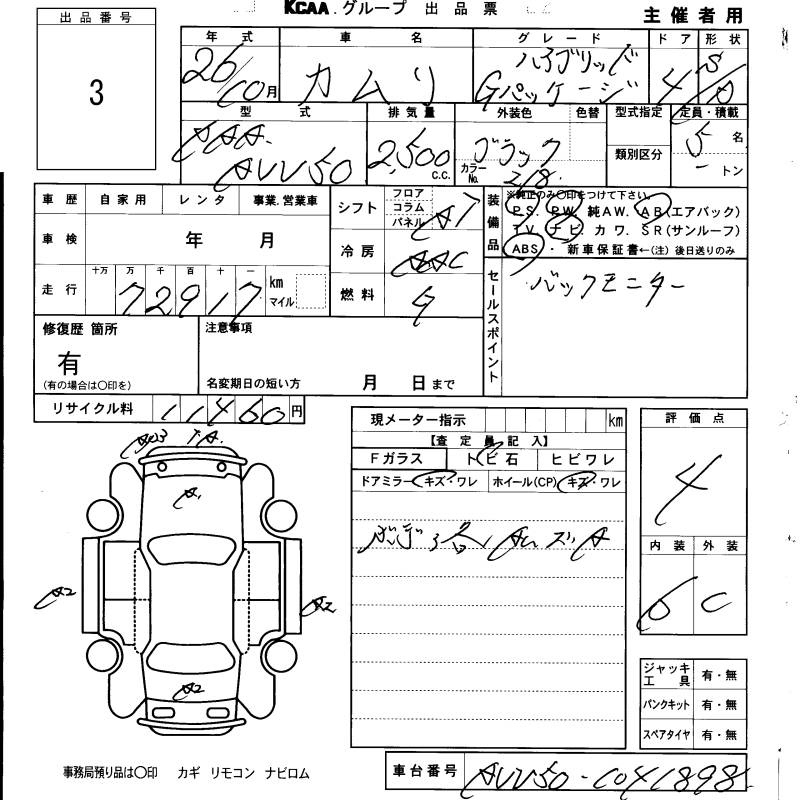 KCAA.グループ 出品票
主催者用
出品番号
3
年式 車名 グレード ドア 形状
26/10月 カムリ ハイブリッド Gパッケージ 4 S/D
型式 排気量 外装色 色替 型式指定 定員・積載
DAA-AVV50 2,500 C.C. ブラック
カラーNo. 218
類別区分
5名
-トン
車歴 自家用 レンタ 事業.営業車
車検 年 月
走行 十万 万 千 百 十 一
72917 km マイル
シフト フロア コラム パネル AT
冷房 AAC
燃料 G
装備品 ※純正のみ〇印をつけて下さい。
P.S. P.W. 純AW. AB(エアバック)
T.V. ナビ. カワ. SR(サンルーフ)
ABS ・ 新車保証書←(注) 後日送りのみ
セールスポイント
バックモニター
修復歴 箇所
有
(有の場合は〇印を)
注意事項
名変期日の短い方 月 日まで
リサイクル料 11460円
現メーター指示 km
【査定員記入】
Fガラス トビ石 ヒビワレ
ドアミラー キズ・ワレ ホイール(CP) キズ・ワレ
評価点
4
内装 外装
C
A1
A2 A2
A2
ジャッキ工具 有・無
パンクキット 有・無
スペアタイヤ 有・無
事務局預り品は〇印 カギ リモコン ナビロム
車台番号 AVV50-1041898